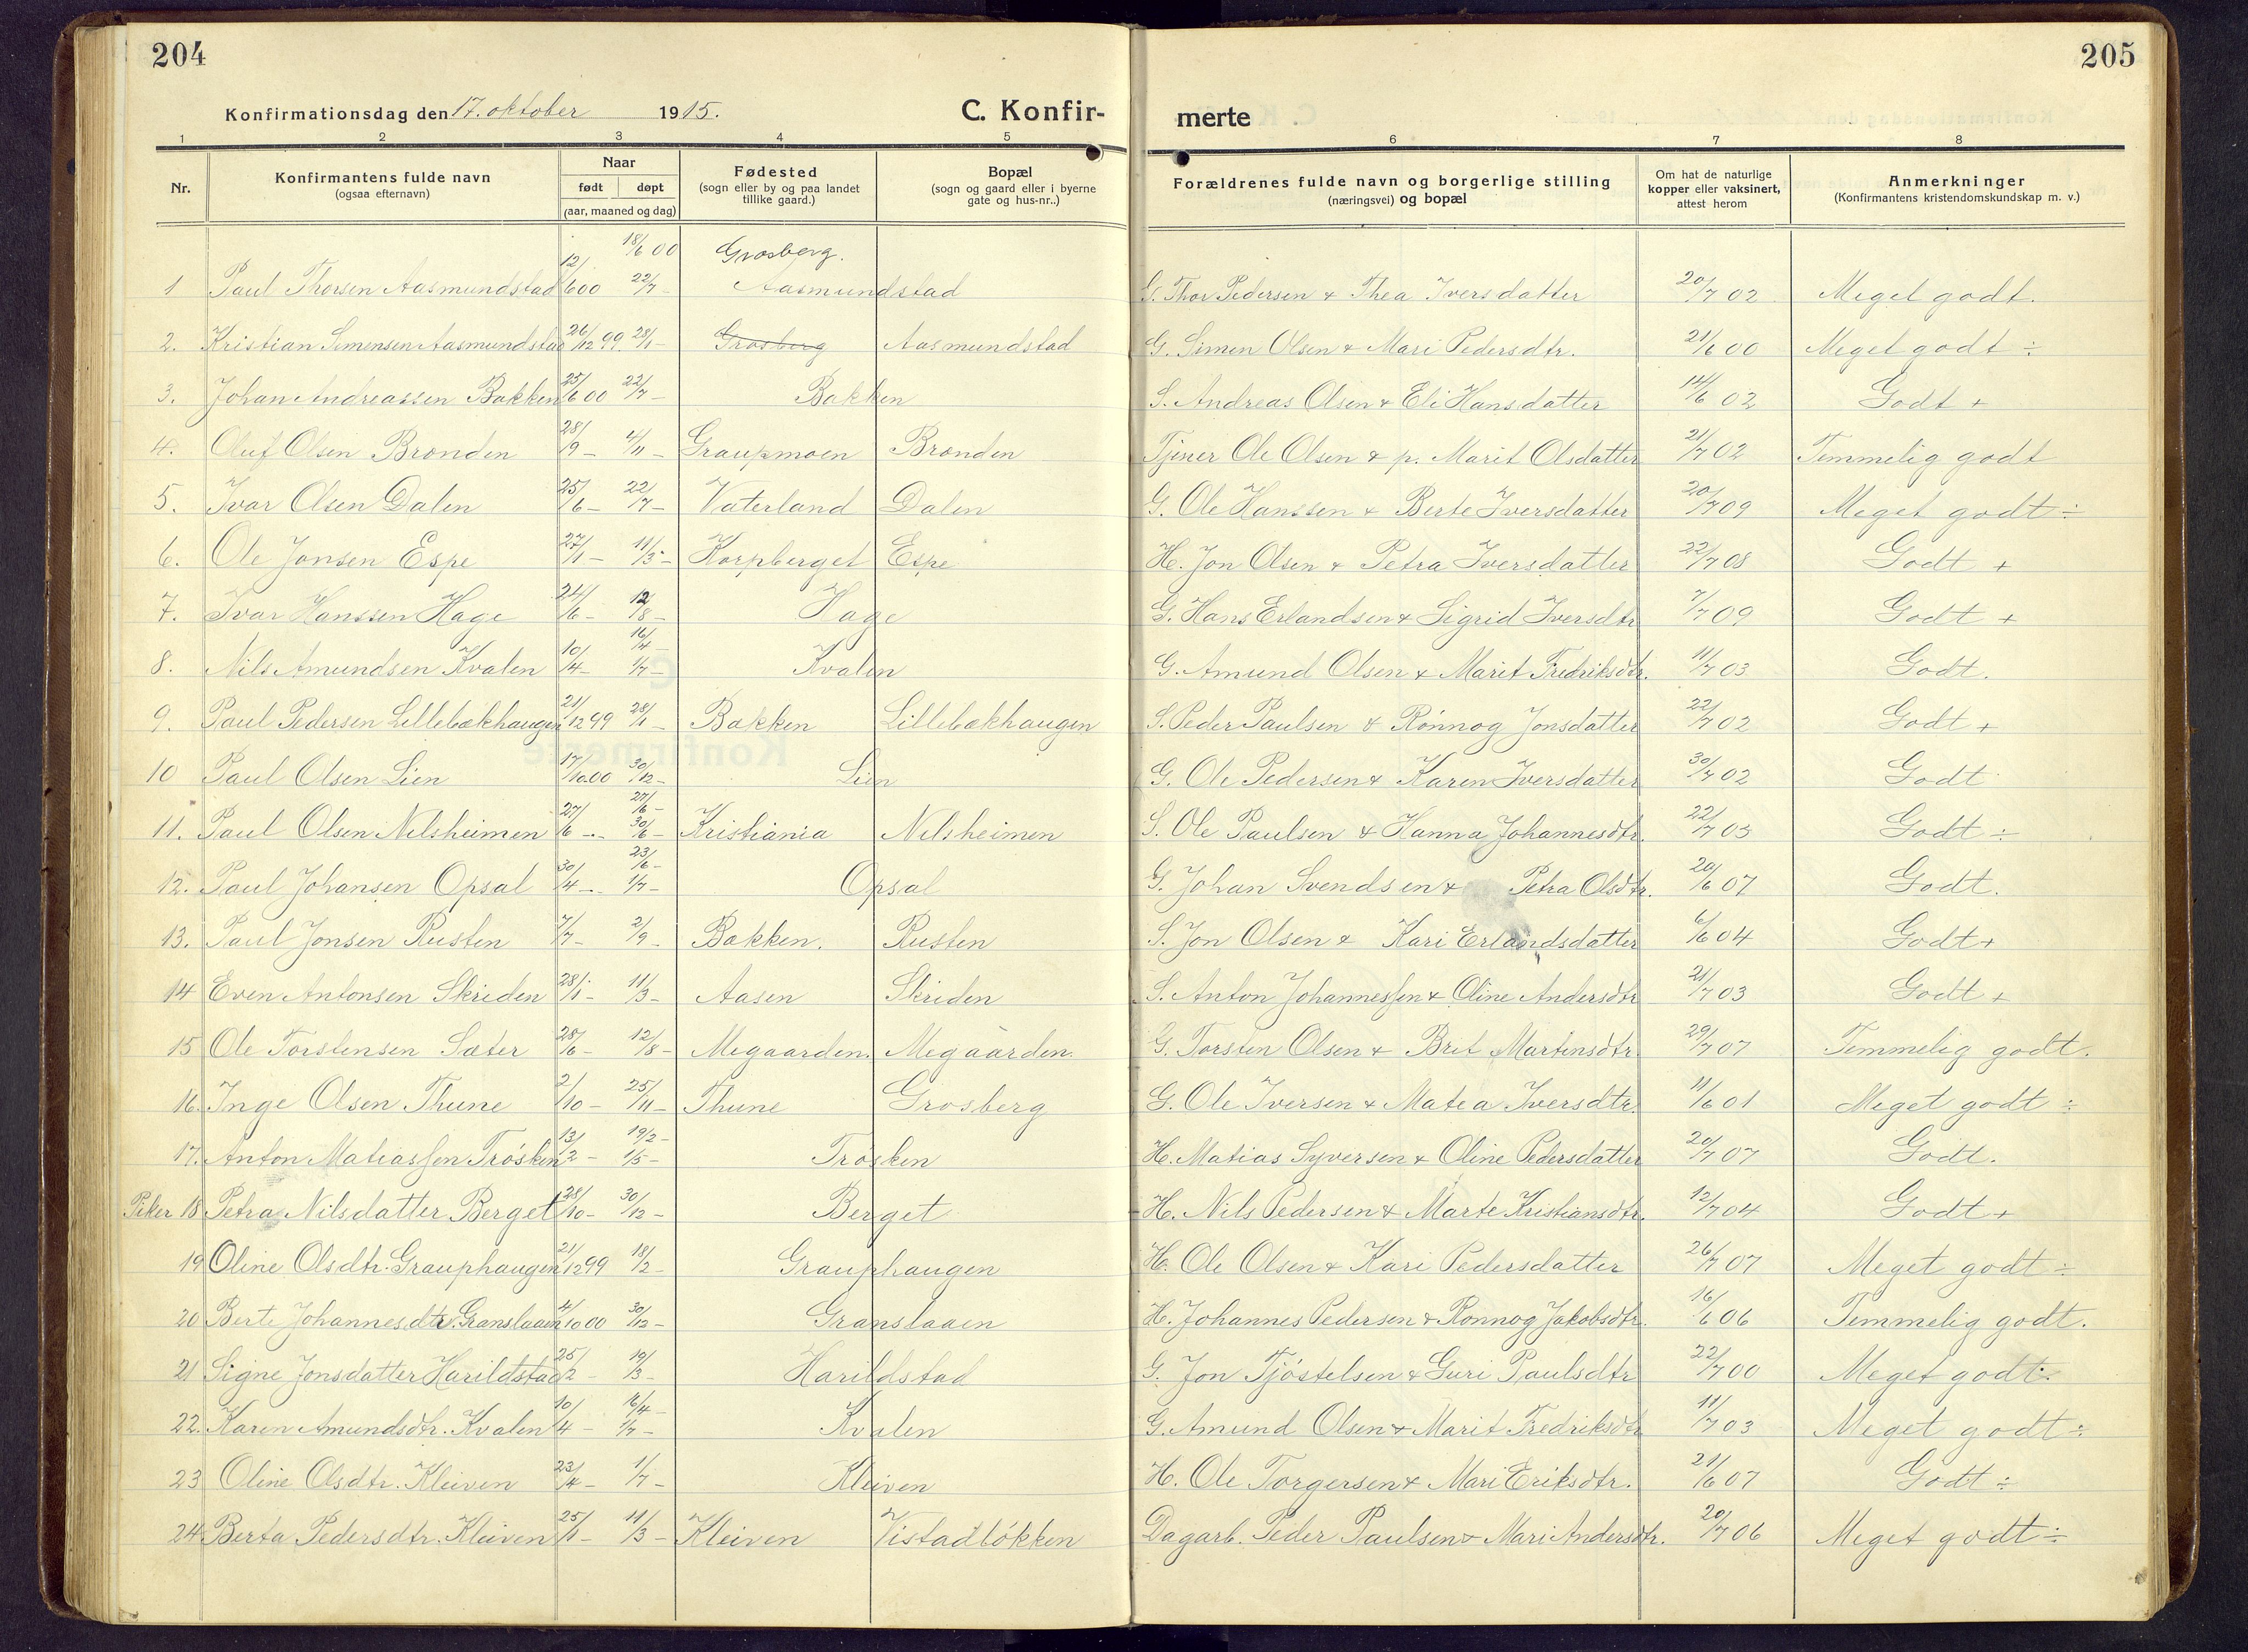 204
205
Konfirmationsdag den 17. oktober 1915.
C. Konfir-
merte
1 2 3 4 5 6 7 8
Nr.
Konfirmantens fulde navn
(ogsaa efternavn)
Naar
født døpt
(aar, maaned og dag)
Fødested
(sogn eller by og paa landet
tillike gaard.)
Bopæl
(sogn og gaard eller i byerne
gate og hus-nr..)
Forældrenes fulde navn og borgerlige stilling
(næringsvei) og bopæl
Om hat de naturlige
kopper eller vaksinert,
attest herom
Anmerkninger
(Konfirmantens kristendomskundskap m. v.)
18/6 00 Grosberg.
1 Paul Thorsen Aasmundstad 12/6 00 22/7 - Aasmundstad G. Thor Pedersen & Thea Iversdatter 20/7 02 Meget godt.
2. Kristian Simensen Aasmundstad 26/12 99. 28/1 - Grosberg Aasmundstad G. Simen Olsen & Mari Pedersdtr. 21/6 00 Meget godt ÷
3. Johan Andreassen Bakken 25/6 00 22/7 - Bakken S. Andreas Olsen & Eli Hansdatter 14/6 02 Godt +
4. Oluf Olsen Brønden 28/9 - 4/11 - Graupmoen Brønden Tjener Ole Olsen & p. Marit Olsdatter 21/7 02 Temmelig godt
5. Ivar Olsen Dalen 25/6 - 22/7 - Vaterland Dalen G. Ole Hanssen & Berte Iversdatter 20/7 09 Meget godt ÷
6. Ole Jonsen Espe 27/1 - 11/3 - Korpberget Espe H. Jon Olsen & Petra Iversdatter 22/7 08 Godt +
7. Ivar Hanssen Hage 24/6 - 12/8 - Hage G. Hans Erlandsen & Sigrid Iversdtr 7/7 09 Godt +
16/4 -
8. Nils Amundsen Kvalen 10/4 - 1/7 - Kvalen G. Amund Olsen & Marit Fredriksdtr. 11/7 03 Godt.
9. Paul Pedersen Lillebækhaugen 21/12 99 28/1 - Bakken Lillebækhaugen S. Peder Paulsen & Rønnog Jonsdatter 22/7 02 Godt +
10 Paul Olsen Lien 17/10 00 30/12 - Lien G. Ole Pedersen & Karen Iversdatter 30/7 02 Godt
27/6 -
11. Paul Olsen Nilsheimen 27/6 - 30/6 - Kristiania Nilsheimen S. Ole Paulsen & Hanna Johannesdtr. 22/7 03 Godt ÷
23/6 -
12. Paul Johansen Opsal 30/4 - 1/7 - Opsal G. Johan Svendsen & Petra Olsdtr. 20/6 07 Godt.
13. Paul Jonsen Rusten 7/7 - 2/9 - Bakken. Rusten S. Jon Olsen & Kari Erlandsdatter 6/6 04 Godt +
14 Even Antonsen Skriden 28/1 - 11/3 - Aasen Skriden S. Anton Johannessen & Oline Andersdtr 21/7 03 Godt +
15 Ole Torstensen Sæter 28/6 - 12/8 - Megaarden. Megaarden. G. Torsten Olsen & Brit Martinsdtr. 29/7 07 Temmelig godt.
16. Inge Olsen Thune 2/10 - 25/11 - Thune Grosberg G. Ole Iversen & Matea Iversdtr. 11/6 01 Meget godt ÷
19/2 -
17. Anton Matiassen Trøsken 13/2 - 1/5 - Trøsken H. Matias Syversen & Oline Pedersdatter 20/7 07 Godt.
Piker 18 Petra Nilsdatter Berget 28/10 - 30/12 - Berget H. Nils Pedersen & Marte Kristiansdtr. 12/7 04 Godt +
19 Oline Olsdtr. Grauphaugen 21/12 99 18/2 - Grauphaugen H. Ole Olsen & Kari Pedersdatter 26/7 07 Meget godt ÷
20 Berte Johannesdtr. Granslaaen 4/10 00 30/12 - Granslaaen H. Johannes Pedersen & Rønnog Jakobsdtr. 16/6 06 Temmelig godt.
21 Signe Jonsdatter Harildstad 25/2 - 19/3 - Harildstad G. Jon Tjøstelsen & Guri Paulsdtr 22/7 00 Meget godt.
16/4 -
22. Karen Amundsdtr. Kvalen 10/4 - 1/7 - Kvalen G. Amund Olsen & Marit Fredriksdtr 11/7 03 Meget godt ÷
23 Oline Olsdtr. Kleiven 23/4 - 1/7 - Kleiven H. Ole Torgersen & Mari Eriksdtr. 21/6 07 Godt ÷
24 Berta Pedersdtr. Kleiven 25/1 - 11/3 - Kleiven Vistadløkken Dagarb. Peder Paulsen & Mari Andersdtr. 20/7 06 Meget godt ÷